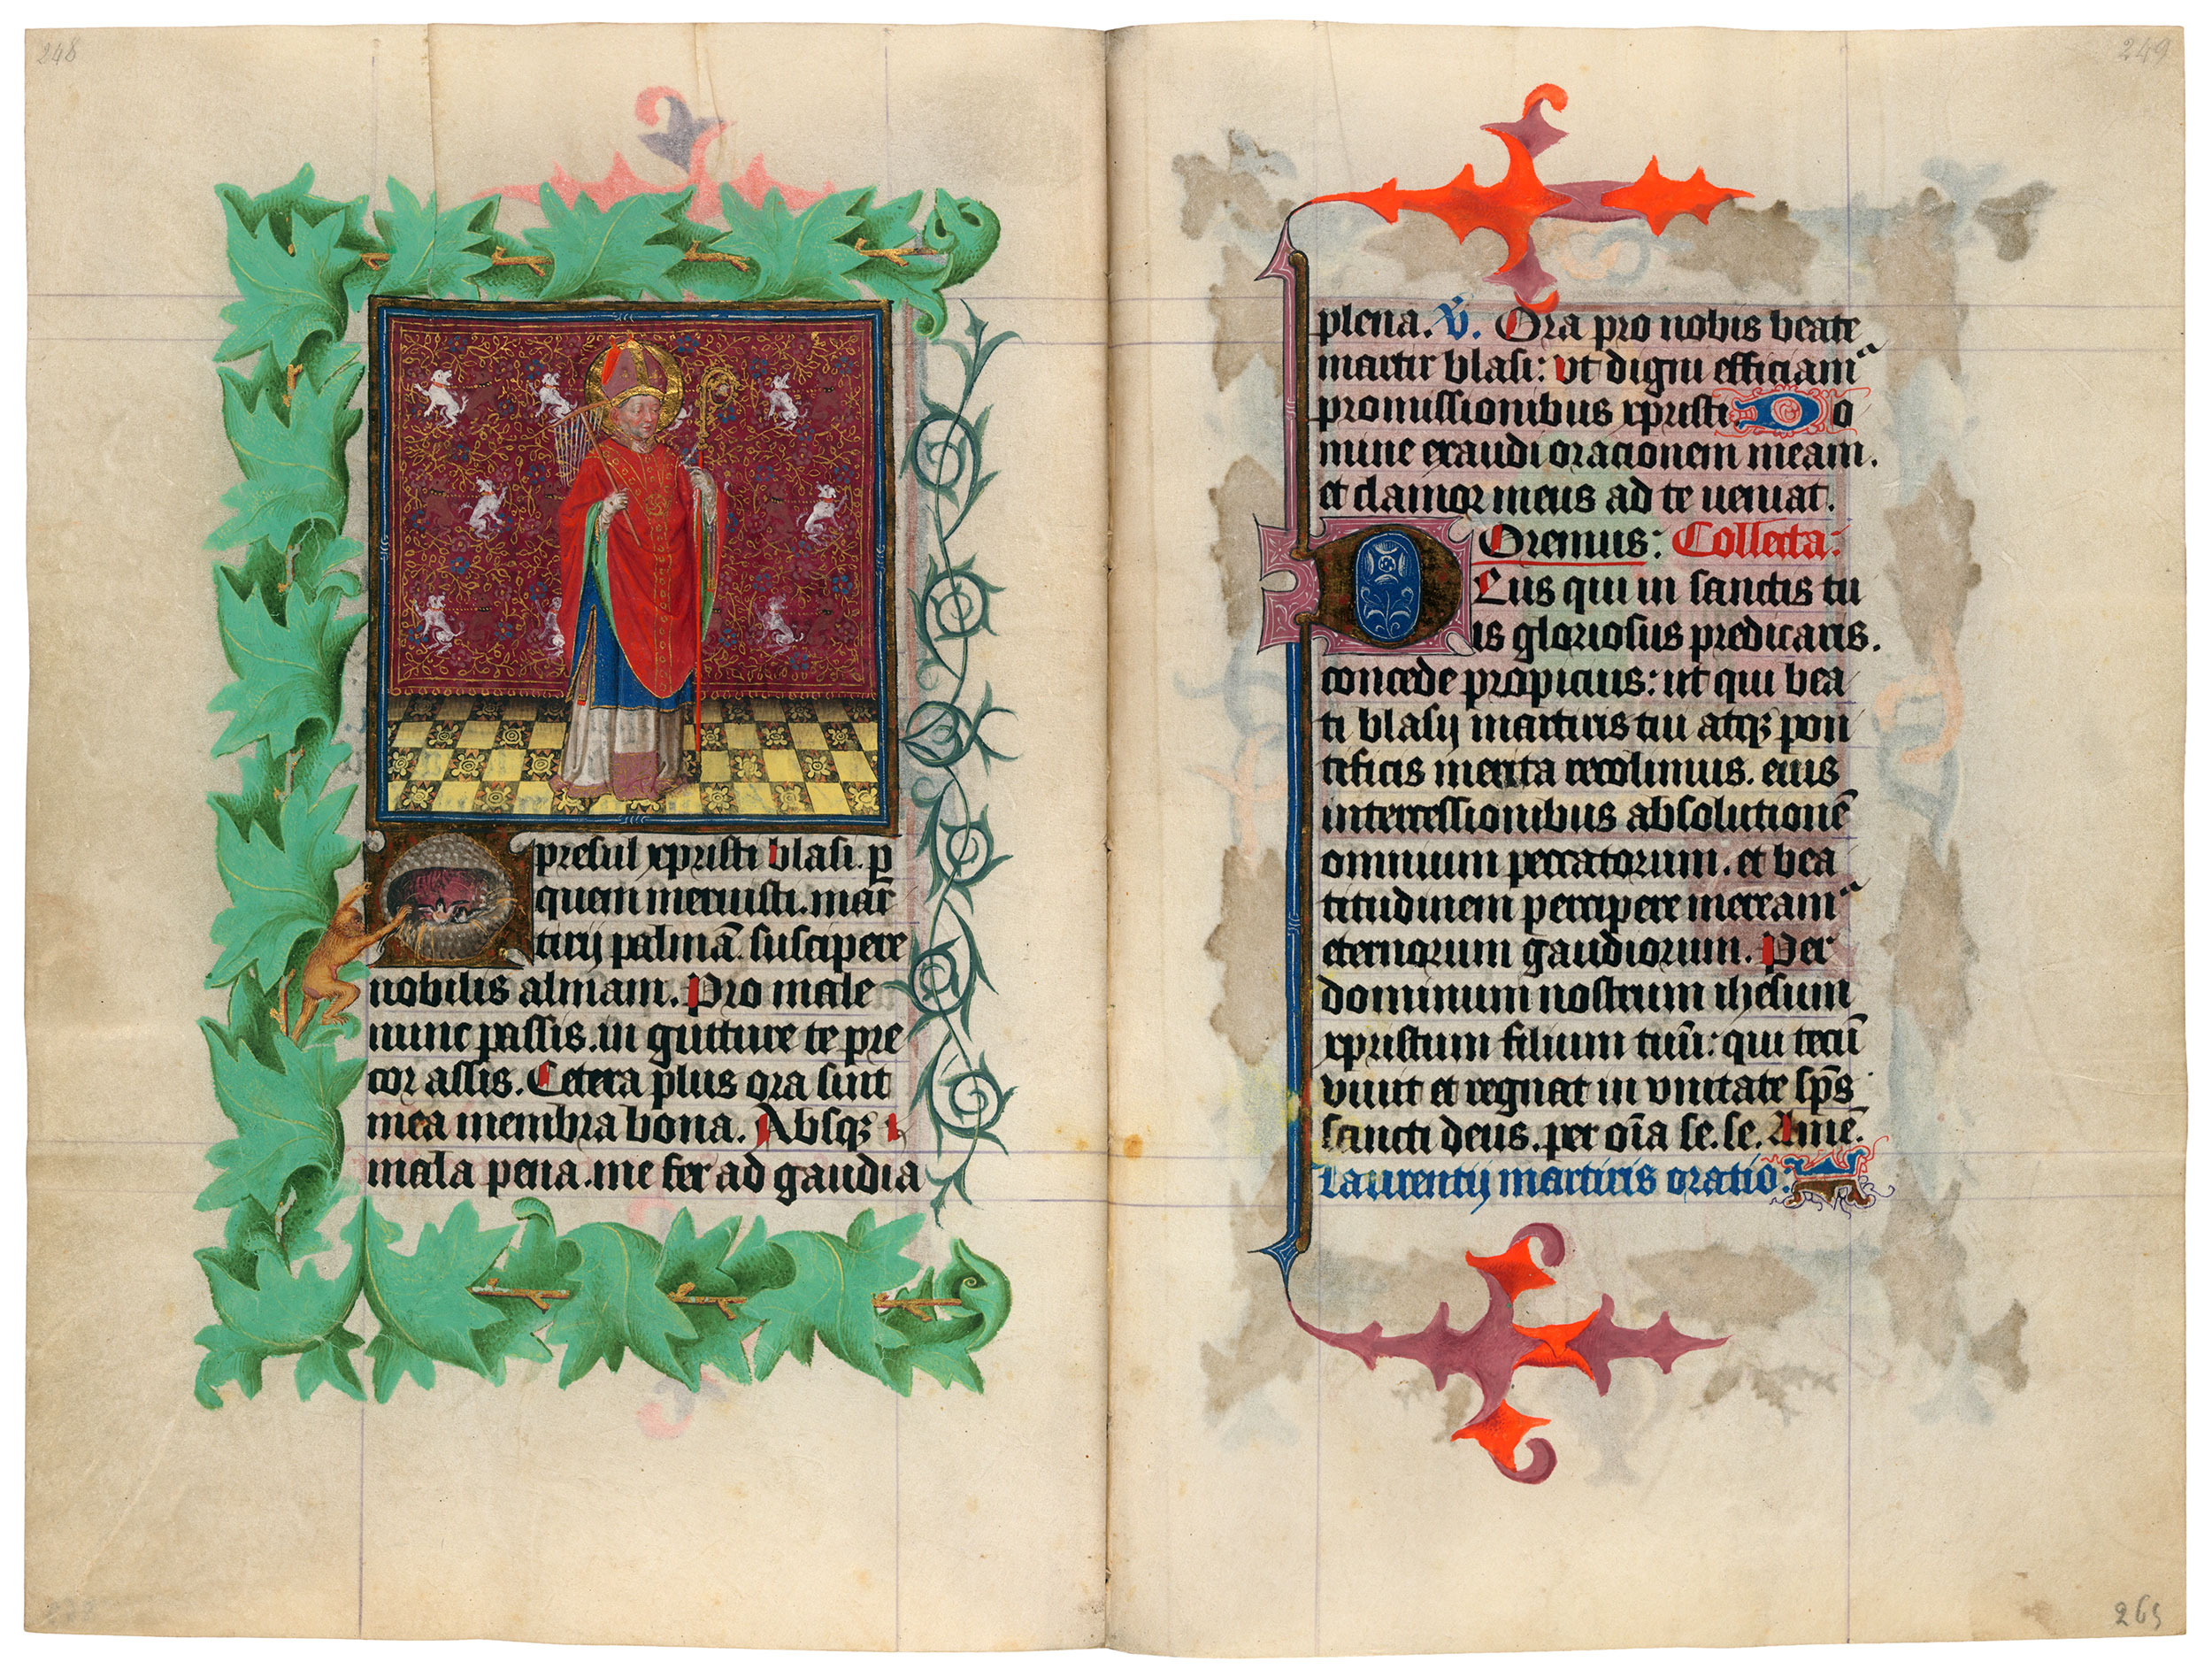 248
presul xpristi blasi. p̱
quem meruisti. mar
tirij palmā. suscipere
nobilis almam. Pro male
nunc passis. in gutture te pre
cor assis. Cetera plus ora sint
mea membra bona. Absqꝫ
mala pena. me fer ad gaudia
249
plena. V̶. Ora pro nobis beate
martir blasi: vt digni efficiam᷑
promissionibus xpristi. Do
mine exaudi oracionem meam.
et clamor meus ad te ueniat.
Oremus: Collecta:
DEus qui in sanctis tu
is gloriosus predicaris.
concede propicius: ut qui bea
ti blasij martiris tui atqꝫ pon
tificis merita recolimus. eius
intercessionibus absolutionē
omnium peccatorum. et bea
titudinem percipere meream᷑
eternorum gaudiorum. Per
dominum nostrum ihesum
xpristum filium tuū: qui tecū
viuit et regnat in vnitate sp̄s
sancti deus. per oīa se. se. Amē.
Laurentij martiris oratio:
265